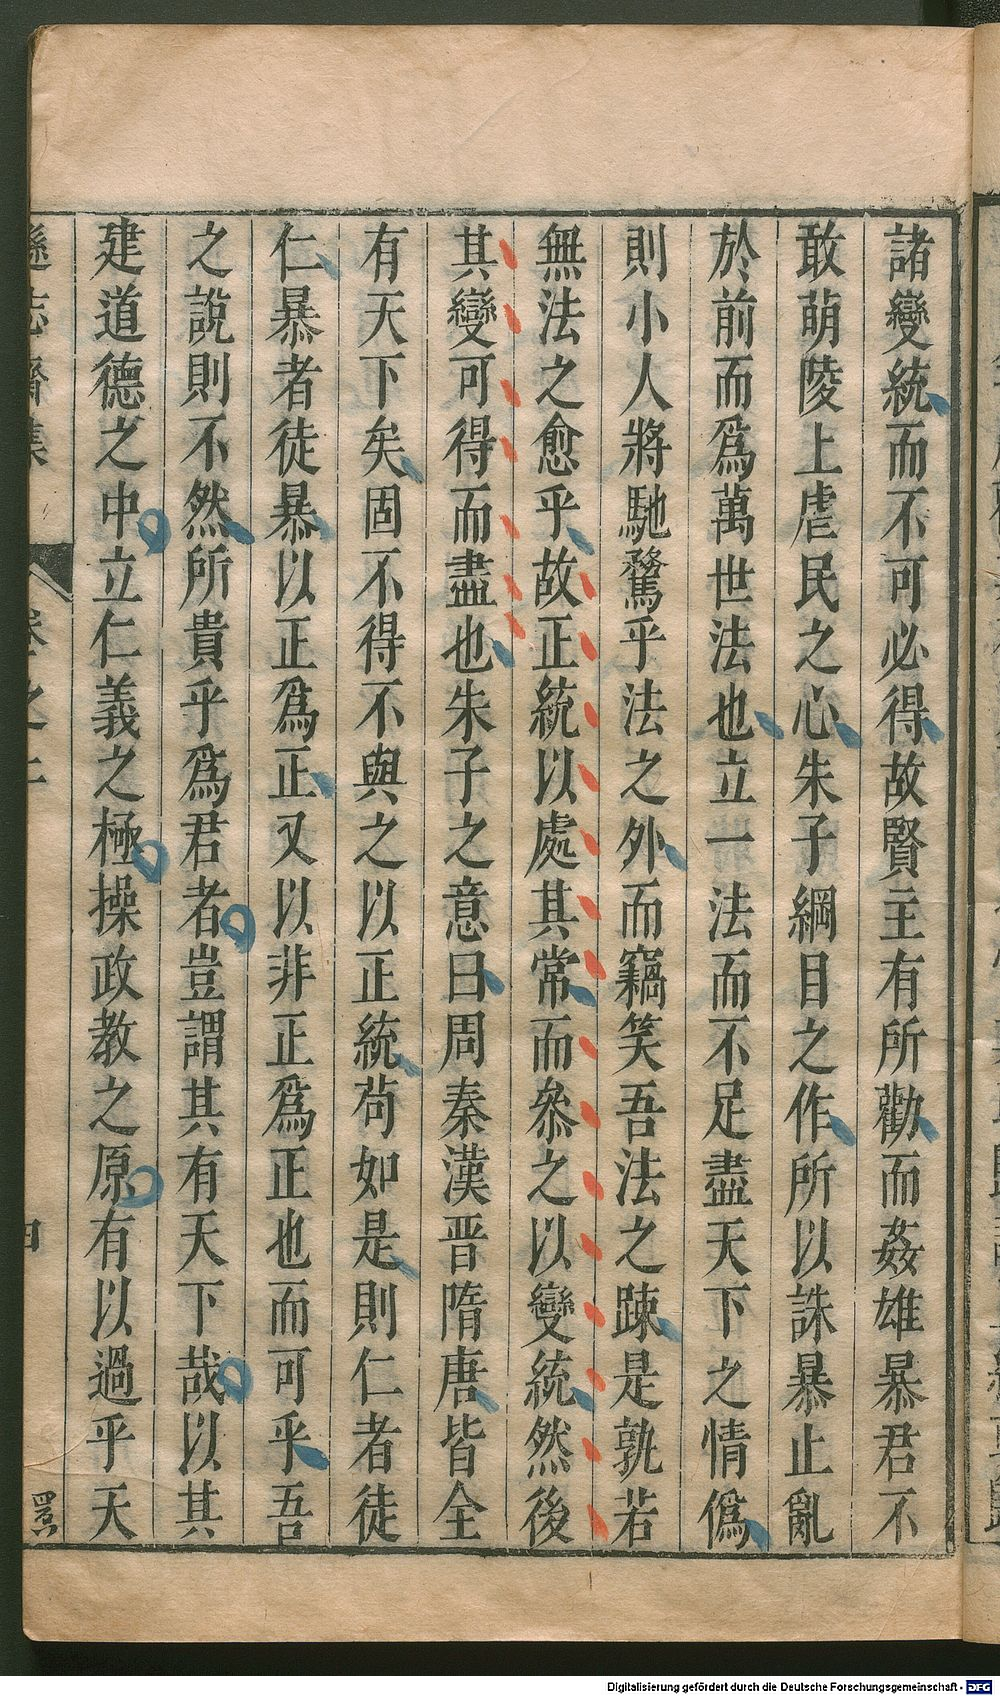 諸變統而不可必得故賢主有所勸而姦雄暴君不
敢萌陵上虐民之心朱子綱目之作所以誅暴止亂
於前而爲萬世法也立一法而不足盡天下之情僞
則小人將馳騖乎法之外而竊笑吾法之踈是孰若
無法之愈乎故正統以處其常而叅之以變統然後
其變可得而盡也朱子之意曰周秦漢晋隋唐皆全
有天下矣固不得不與之以正統茍如是則仁者徒
仁暴者徒暴以正爲正又以非正爲正也而可乎吾
之說則不然所貴乎爲君者豈謂其有天下哉以其
建道德之中立仁義之極操政教之原有以過乎天
遜志齋集
卷之二
四
Digitalisierung gefördert durch die Deutsche Forschungsgemeinschaft - DFG